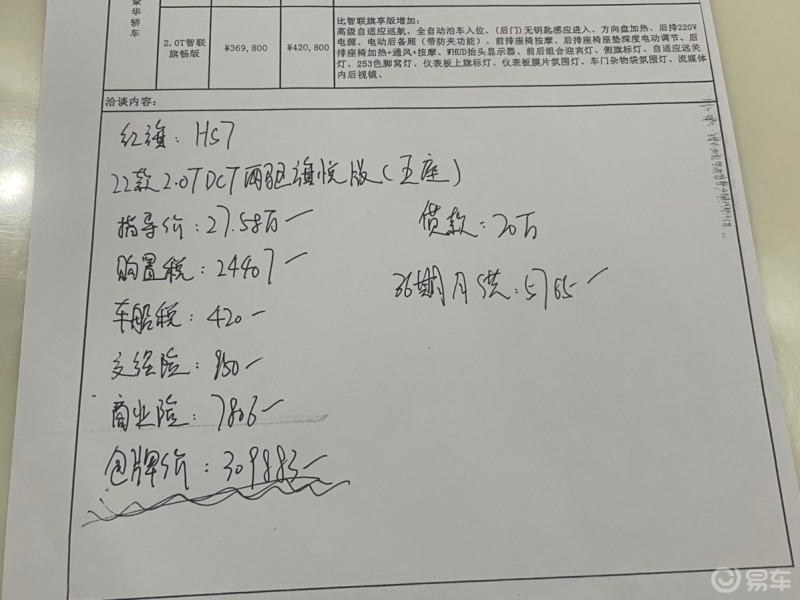 豪华轿车
2.0T智联旗畅版
¥369,800
¥420,800
比智联旗享版增加:
高级自适应巡航、全自动泊车入位、(后门)无钥匙感应进入、方向盘加热、后排220V
电源、电动后备厢(带防夹功能)、前排座椅按摩、后排座椅座垫深度电动调节、后
排座椅加热+通风+按摩、WHUD抬头显示器、前后组合迎宾灯、侧旗标灯、自适应远关
灯、253色脚窝灯、仪表板上旗标灯、仪表板膜片氛围灯、车门杂物袋氛围灯、流媒体
内后视镜。
洽谈内容:
红旗:HS7
22款2.0T DCT两驱旗悦版(五座)
指导价:27.58万
贷款:20万
购置税:24407
36期月供:5765
车船税:420
交强险:950
商业险:7806
包牌价:309883
易车